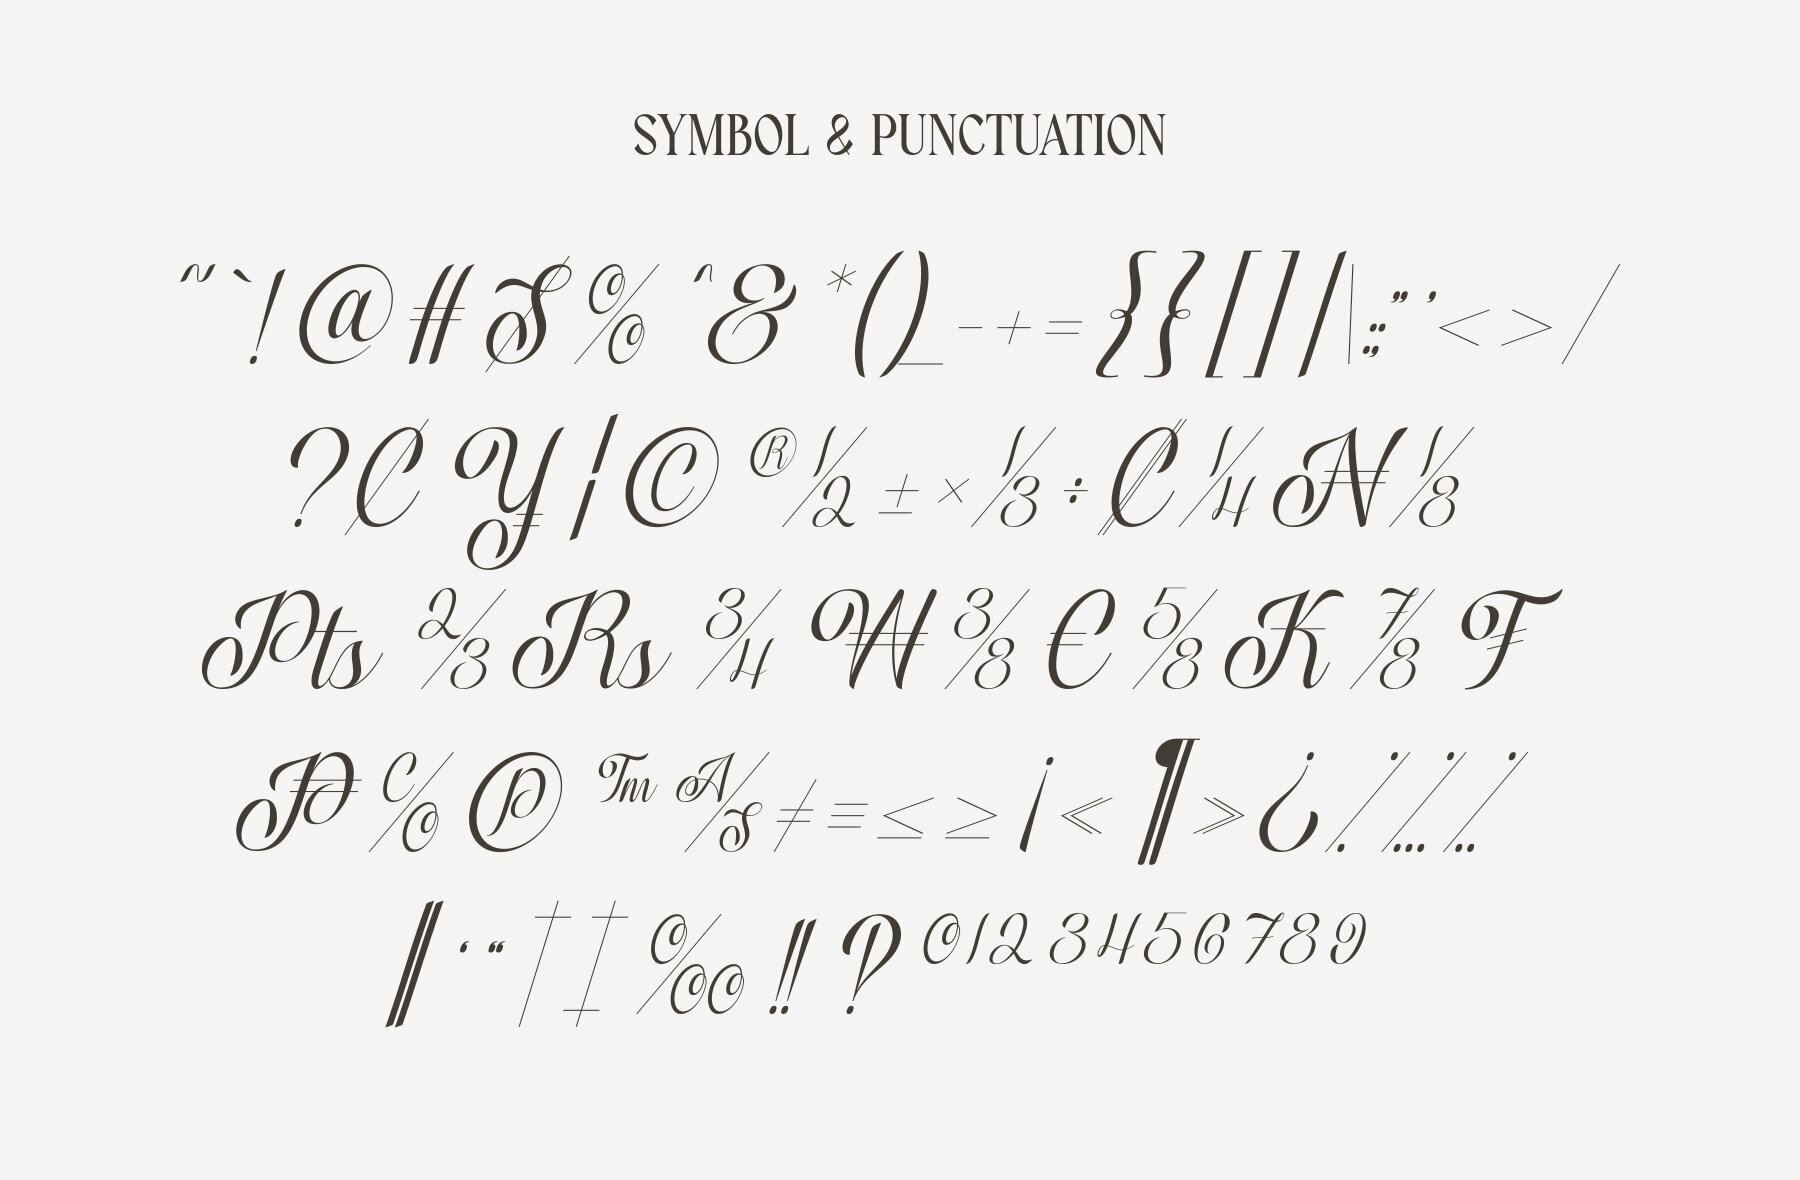 SYMBOL & PUNCTUATION
~`!@#$%^&*()_-+={}[]\|:;"'<>/
?¢¥¦©®½±×⅓÷₡¼₦⅛
₧⅔₨¾₩⅜€⅝₭⅞₣
₱℅℗™⅍≠≡≤≥¡«¶»¿
‖‘“†‡‰‼‽0123456789